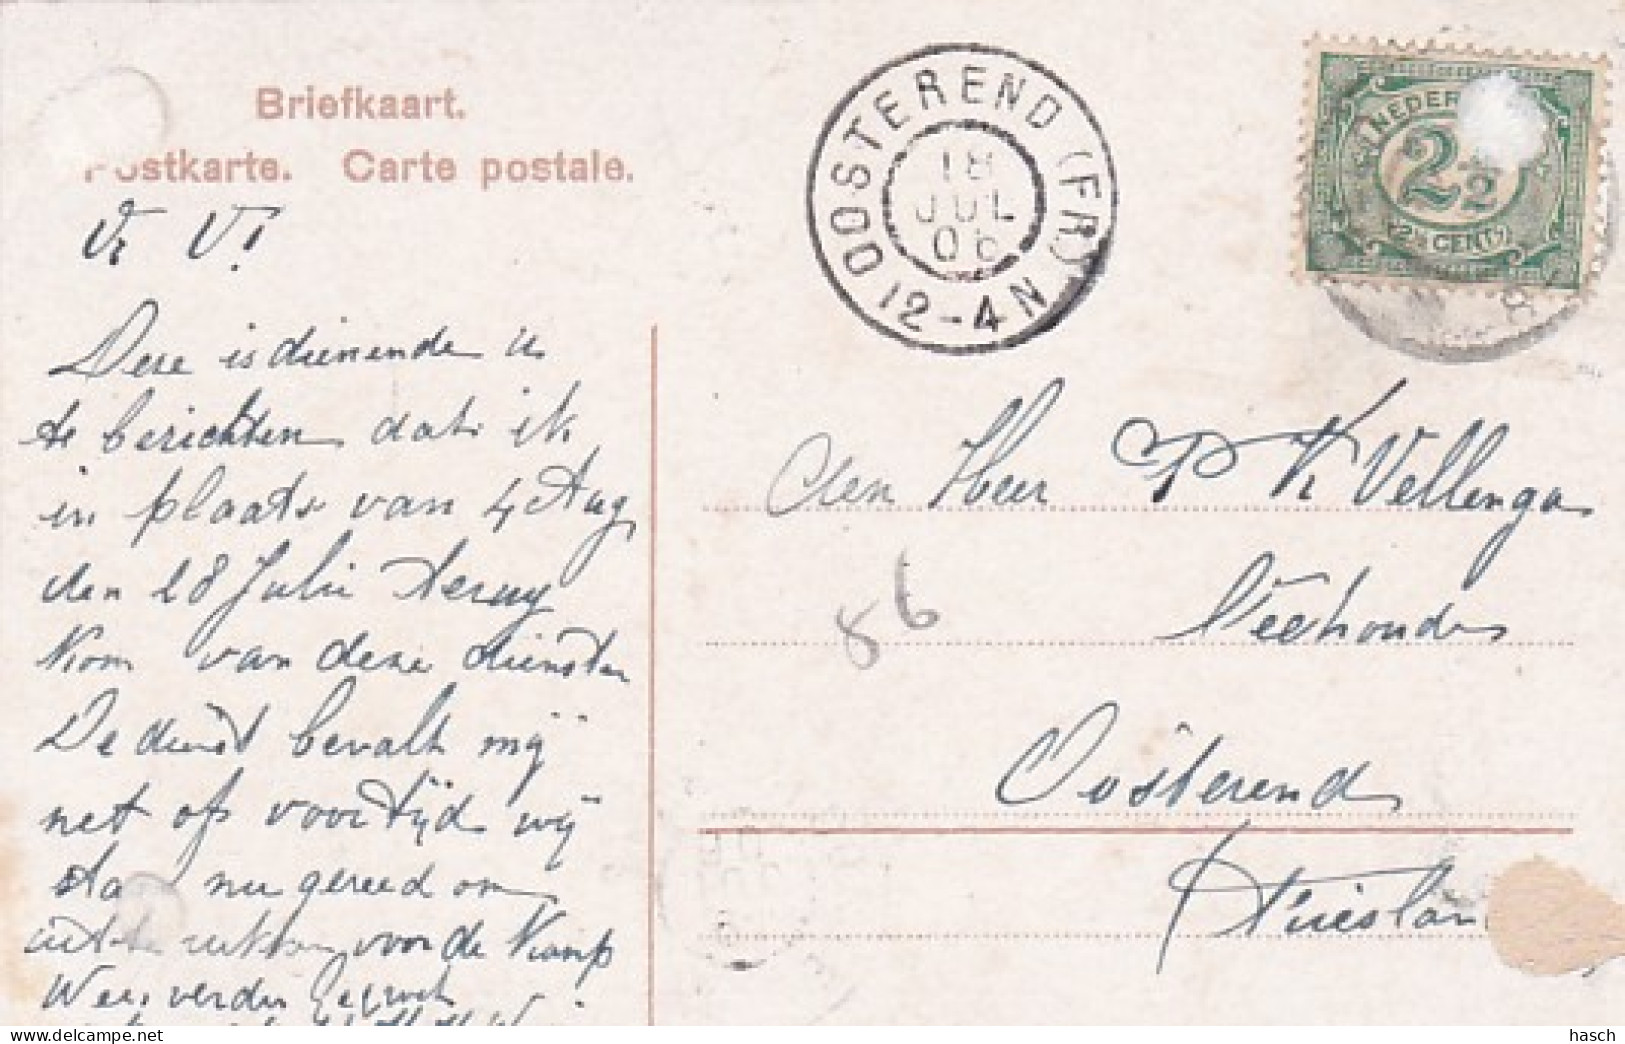 Briefkaart.
Postkarte. Carte postale.
OOSTEREND (FR)
18
JUL
06
12-4N
NEDER
2 1/2
2½ CENT
Vr V!
Deze is dienende u
te berichten dat ik
in plaats van 4 Aug
den 28 Julie terug
Kom van deze dienster
De dienst bevalt mij
net op voor tijd wij
sta nu gereed om
uit te rukken voor de Kamp
Wees verder gegroet
den Heer P K Vellenga
Veehouder
Oosterend
Frieslan
86
hasch